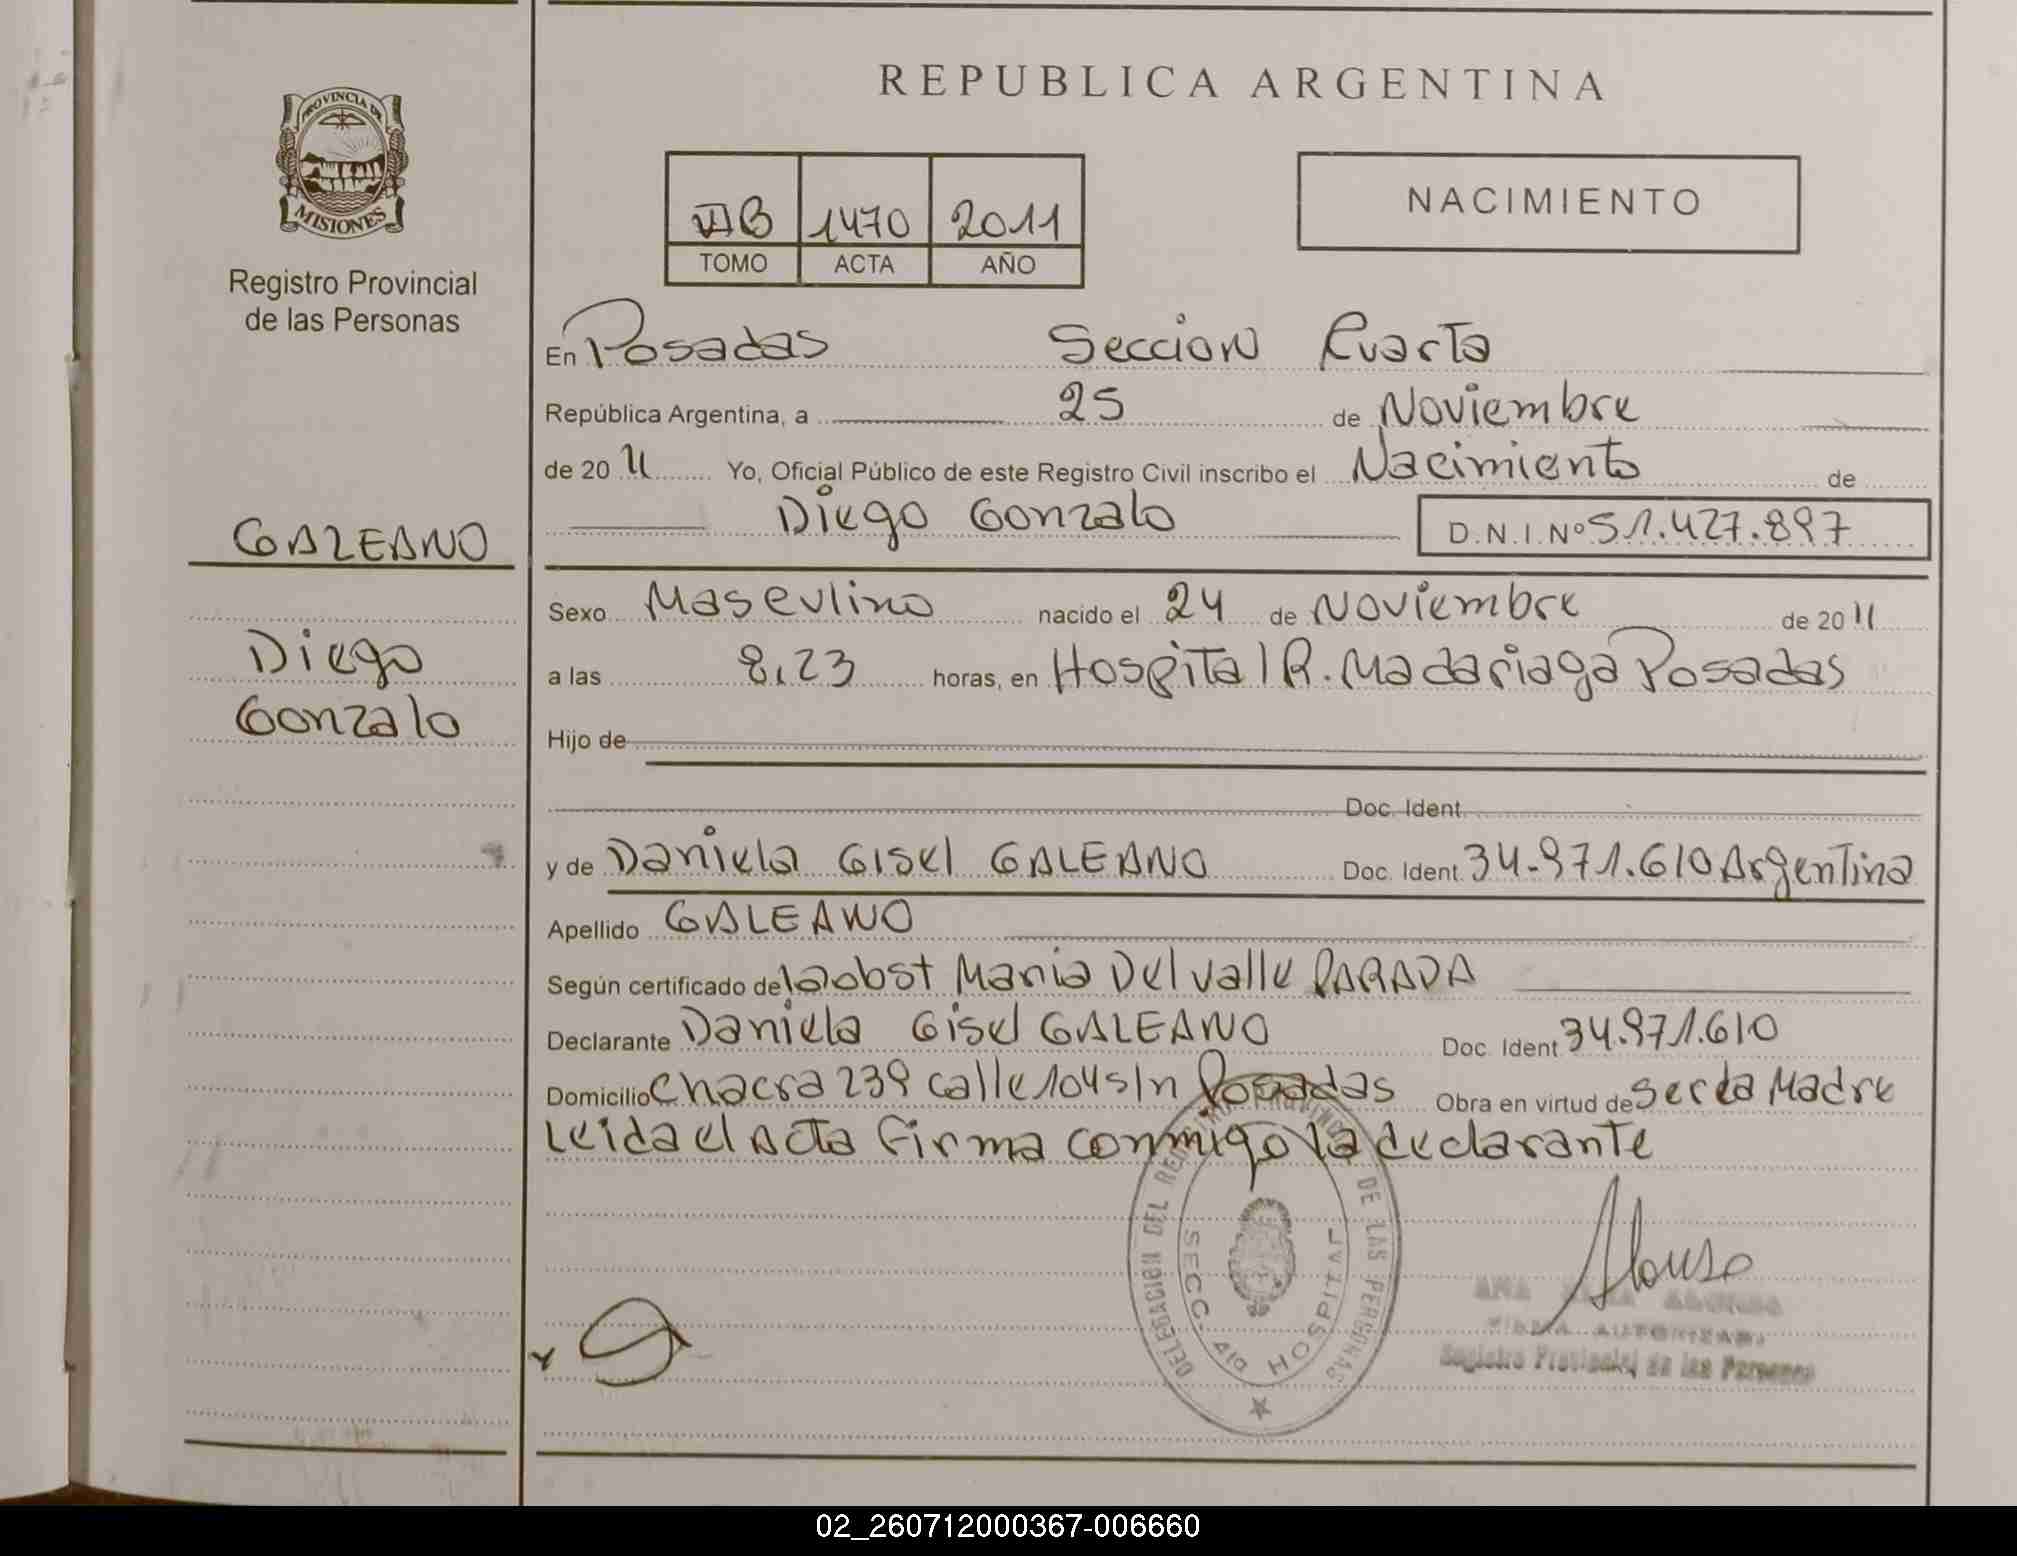 PROVINCIA DE
MISIONES
Registro Provincial
de las Personas
GALEANO
Diego
Gonzalo
REPUBLICA ARGENTINA
VIB 1470 2011
TOMO ACTA AÑO
NACIMIENTO
En Posadas Seccion Cuarta
República Argentina, a 25 de Noviembre
de 20 11 Yo, Oficial Público de este Registro Civil inscribo el Nacimiento de
Diego Gonzalo D.N.I.Nº 51.427.897
Sexo Masculino nacido el 24 de Noviembre de 20 11
a las 8,23 horas, en Hospital R. Madariaga Posadas
Hijo de
Doc. Ident.
y de Daniela Gisel GALEANO Doc. Ident. 34.971.610 Argentina
Apellido GALEANO
Según certificado de la obst Maria Del Valle PARADA
Declarante Daniela Gisel GALEANO Doc. Ident 34.971.610
Domicilio Chacra 239 calle 104 s/n Posadas Obra en virtud de ser la Madre
Leida el Acta Firma conmigo la declarante
DELEGACION DEL REGISTRO PROVINCIAL DE LAS PERSONAS
SECC. 4ta HOSPITAL
Alonso
ALONSO
FIRMA AUTORIZADA
Registro Provincial de las Personas
02_260712000367-006660